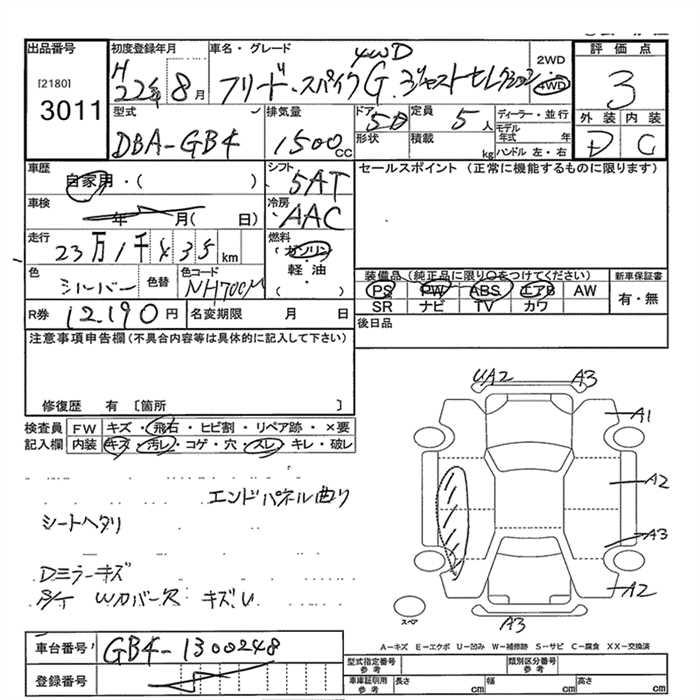 出品番号 初度登録年月 車名・グレード 2WD 評価点
[2180] 3011 H 22年 8月 4WD フリード・スパイク G. ジャストセレクション 4WD 3
型式 排気量 ドア 定員 ディーラー・並行 外装 内装
DBA-GB4 1500cc 5D 形状 5人 積載 kg モデル年式 年 ハンドル 左・右 D C
車歴 自家用・( ) シフト 5AT セールスポイント (正常に機能するものに限ります)
車検 年 月( 日) 冷房 AAC
走行 23万1千435km 燃料 (ガソリン 軽・油 ( )
色 シルバー 色替 色コード NH700M 装備品(純正品に限り○をつけてください) 新車保証書
PS PW ABS エアB AW 有・無
SR ナビ TV カワ
R券 12.190円 名変期限 月 日 後日品
注意事項申告欄(不具合内容等は具体的に記入して下さい)
修復歴 有 〔箇所 〕
検査員記入欄 FW キズ・飛石・ヒビ割・リペア跡・×要
内装 キズ・汚レ・コゲ・穴・スレ・キレ・破レ
UA2 A3
A1
エンドパネル曲り
A2
シートヘタリ
A3
Dミラーキズ
A2
B/T Wカバー欠 キズU
スペア
A3
A-キズ E-エクボ U-凹み W-補修跡 S-サビ C-腐食 XX-交換済
車台番号 GB4-1300248
型式指定番号 参考 類別区分番号 参考
登録番号 車庫証明用 参考 長さ cm 幅 cm 高さ cm